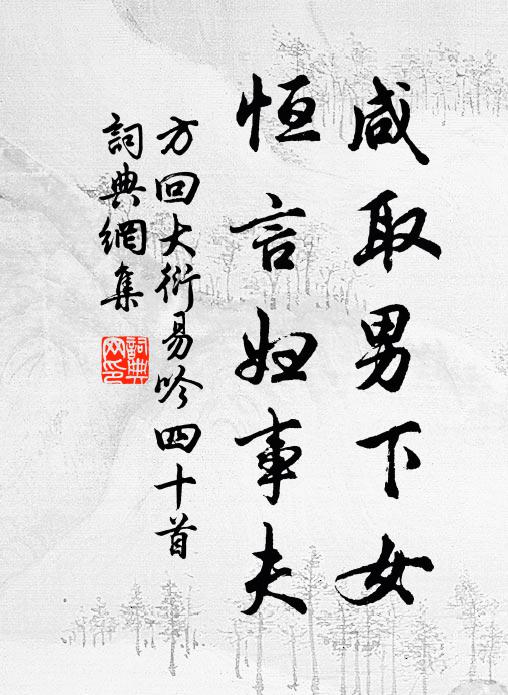 咸取男下女
恒言妇事夫
方回大衍易吟四十首
詞典網集
詞典网印